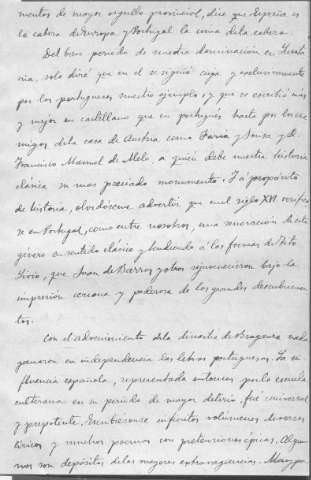 mentos de mayor orgullo provincial, dice que España es
la cabeza de Europa y Portugal la cima de la cabeza.
Del breve periodo de nuestra dominacion en Lusita-
nia, solo diré que en él se siguió ciega y exclusivamente
por los portugueses nuestro ejemplo, y que se escribió más
y mejor en castellano que en portugués hasta por los ene-
migos de la casa de Austria como Faria y Sousa y D.
Francisco Manuel de Melo a quien debe nuestra historia
clásica su mas preciado monumento. Y á propósito
de historia, olvidóseme advertir que en el siglo XVI verifica-
se en Portugal, como entre nosotros, una renovacion de este
género en sentido clásico y tendiendo á las formas de Tito
Livio, que Juan de Barros y otros rejuvenecieron bajo la
impresión cercana y poderosa de los grandes descubrimien-
tos.
Con el advenimiento de la dinastia de Braganza nada
ganaron en independencia las letras portuguesas. La in-
fluencia española, representada entonces por la escuela
culterana en su periodo de mayor delirio, fué universal
y prepotente. Escribiéronse infinitos volúmenes de versos
líricos y muchos poemas con pretensiones épicas. Algu-
nos son depósitos de las mayores extravagancias. Mas,